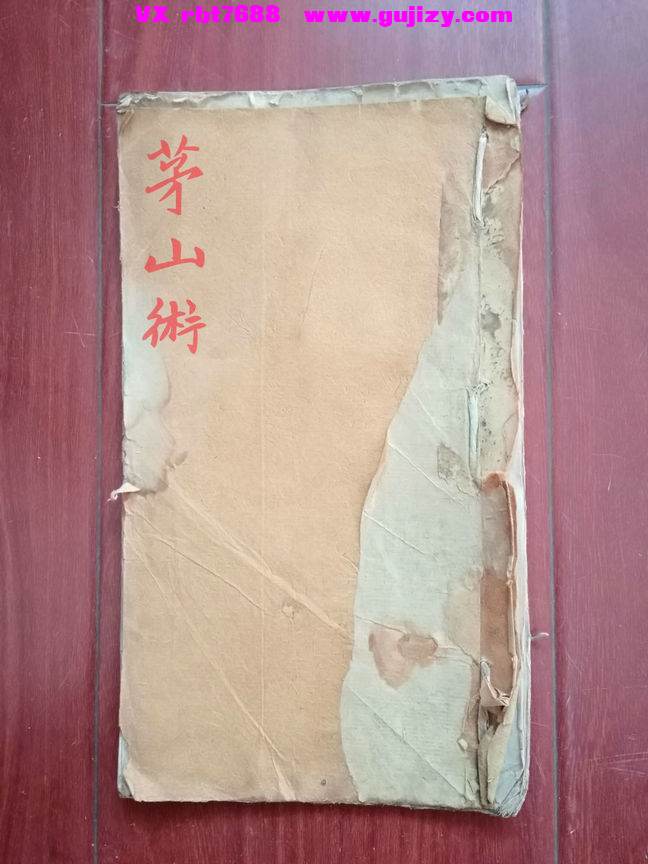 VX rbt7688 www.gujizy.com
茅山術